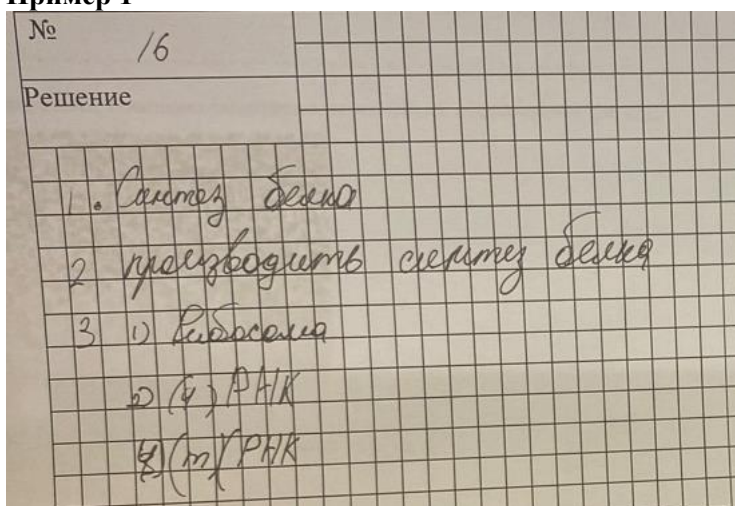 Пример 1
№ 16
Решение
1. Синтез белка
2 производить синтез белка
3 1) Рибосома
2) (и) РНК
3) (т) РНК